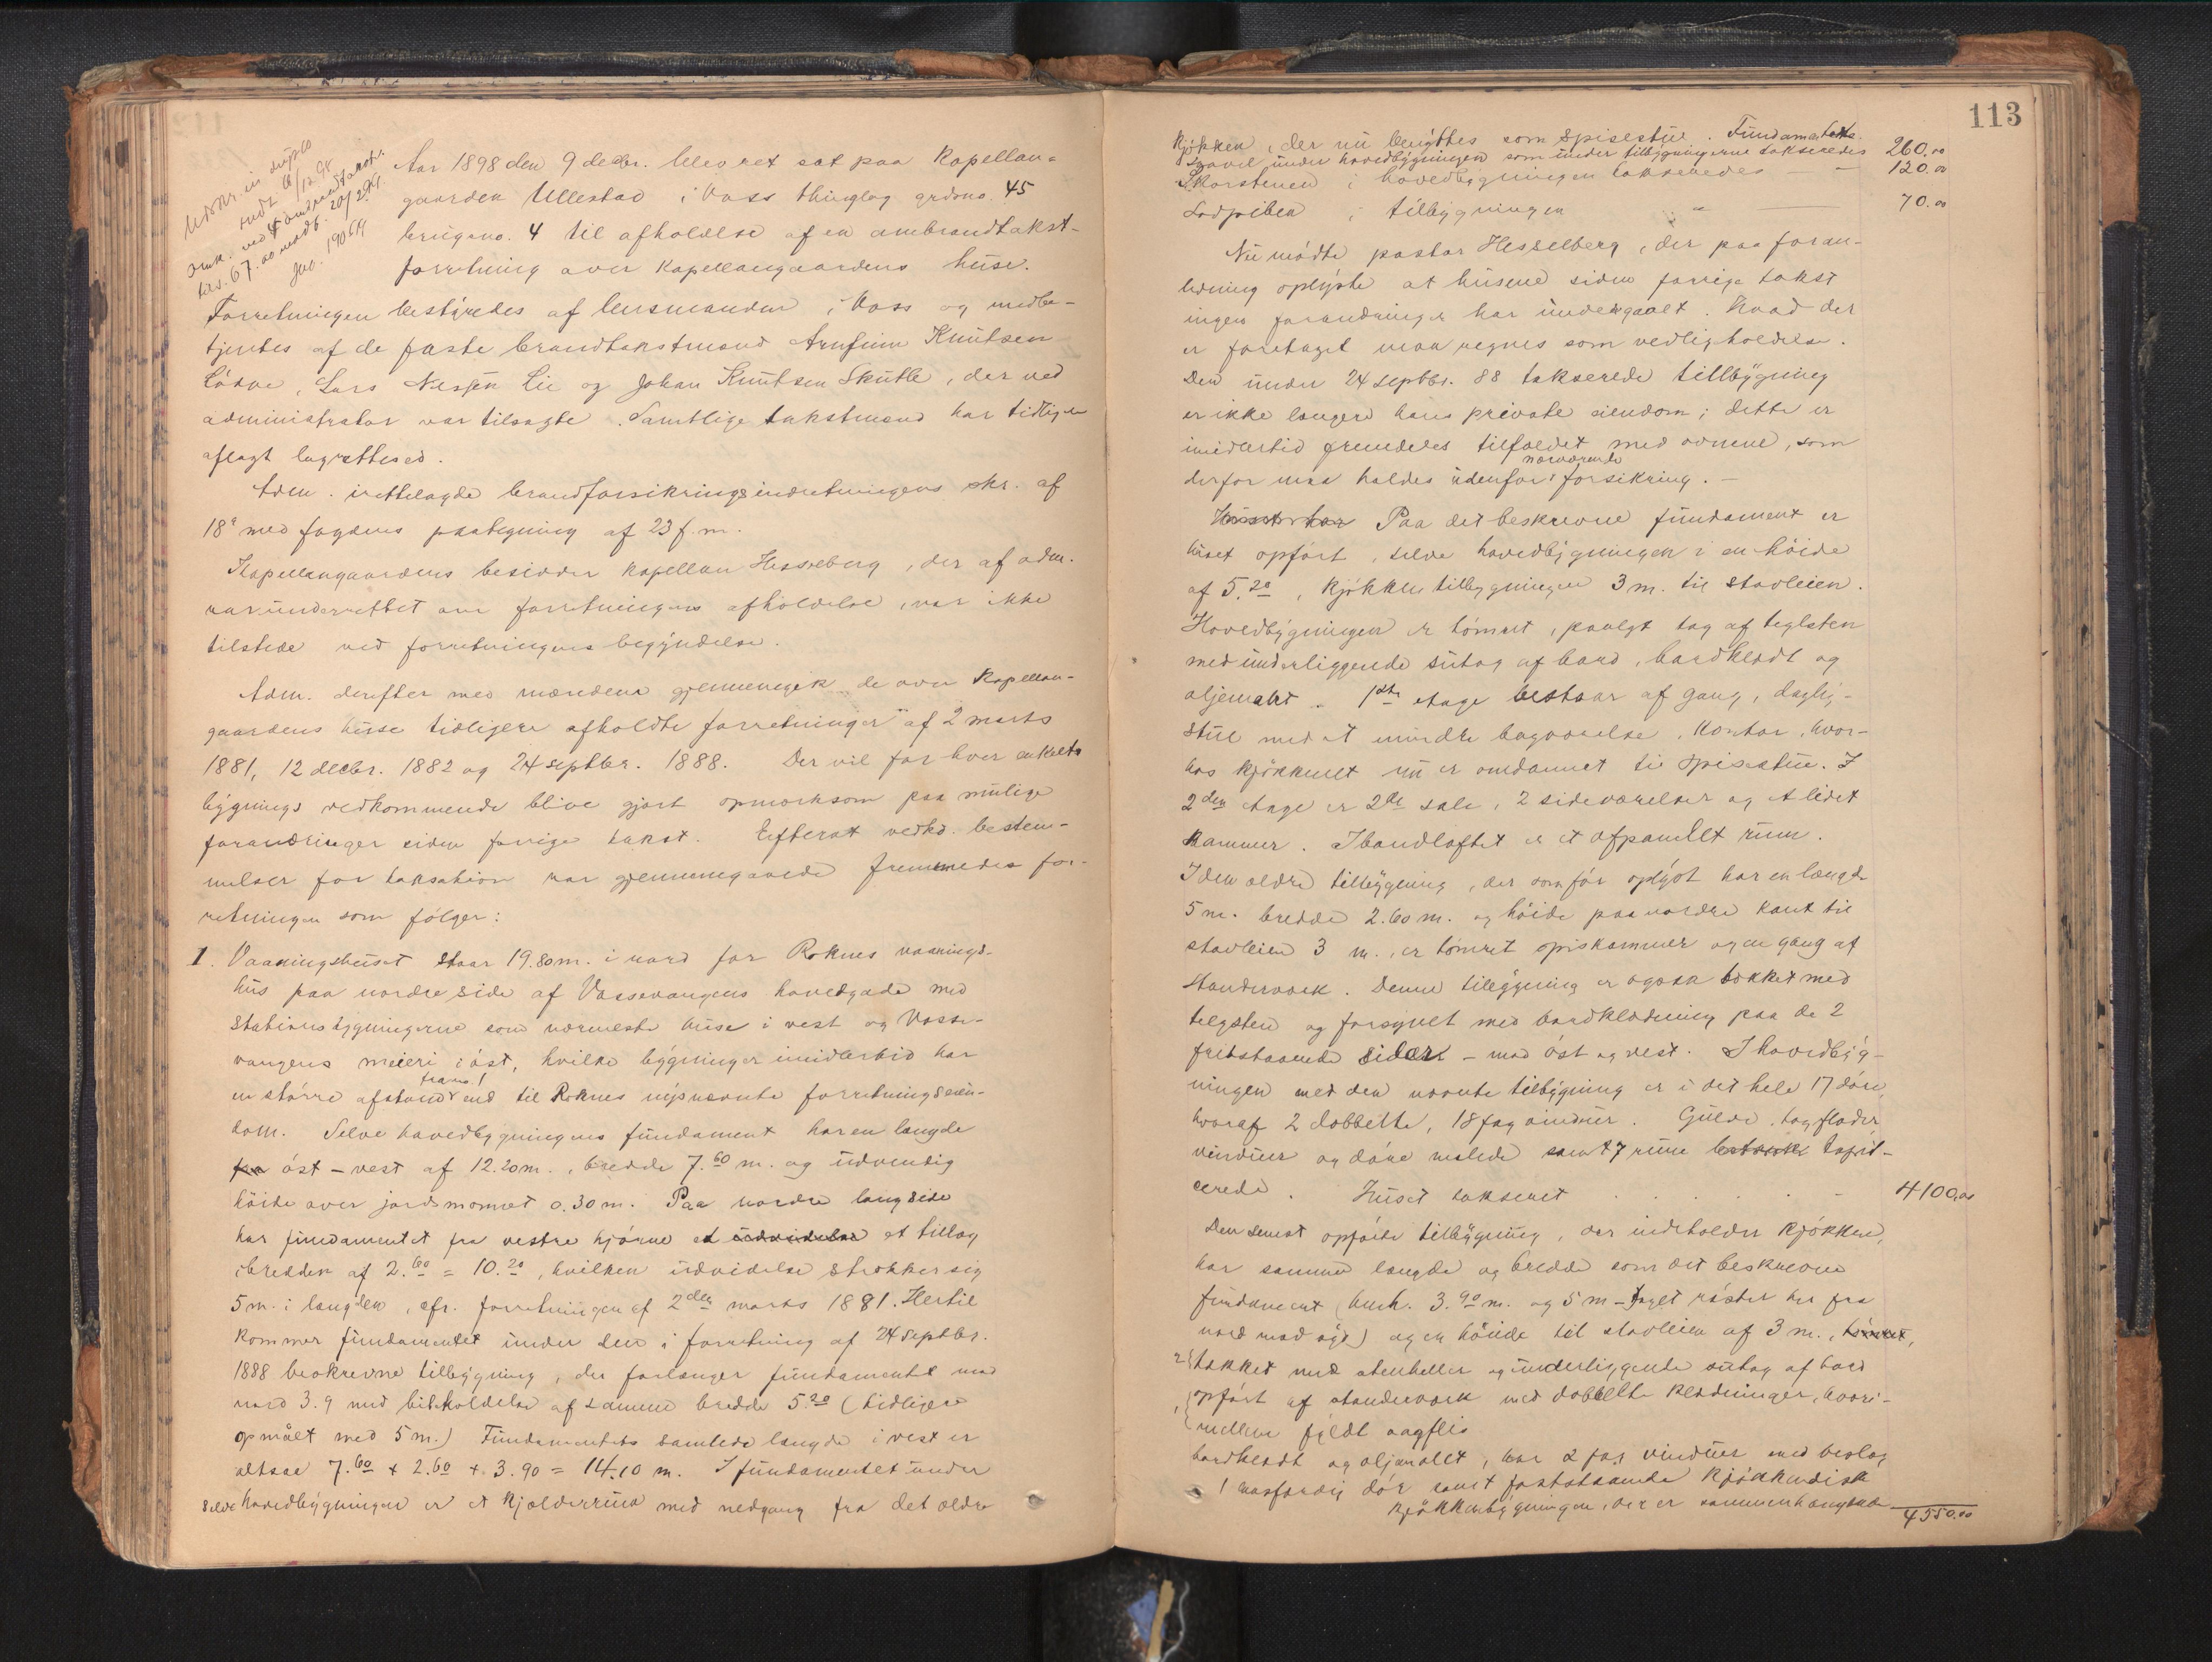 Udskr. in duplo
sendt 16/12 98
Omk. ved
kr. 67.00 modt. 20/2 99.
Jno. 190 1/99
Aar 1898 den 9 decbr. blev ret sat paa Kapellan-
gaarden Ullestad i Voss thinglag grdsno. 45
brugsno. 4 til afholdelse af en ombrandtakst-
forretning over Kapellangaardens huse.
Forretningen bestyredes af lensmanden i Voss og medbe-
tjentes af de faste brandtakstmænd Arnfinn Knutsen
Lödve, Lars Nessen Lie og Johan Knutsen Skutle, der ved
administrator var tilsagte. Samtlige takstmænd har tidligere
aflagt lagrettesed.
Adm. irettelagde brandforsikringsindretningens skr. af
18' med fogdens paategning af 23 f.m.
Kapellangaardens besidder kapellan Hesselberg, der af adm.
var underrettet om forretningens afholdelse, var ikke
tilstede ved forretningens begyndelse.
Adm. derefter med mændene gjennemgik de over Kapellan-
gaardens huse tidligere afholdte forretninger af 2 marts
1881, 12 decbr. 1882 og 24 septbr. 1888. Der vil for hver enkelte
bygnings vedkommende blive gjort opmerksom paa mulige
forandringer siden forrige takst. Efterat vedkd. bestem-
melser for taksation var gjennemgaaede fremmedes for-
retningen som følger:
1. Vaaningshuset staar 19.80 m. i nord for Roknes vaanings-
hus paa nordre side af Vossevangens hovedgade med
stationsbygningerne som nærmeste huse i vest og Vosse-
vangens meieri i öst, hvilke bygninger imidlertid har
en större afstand frano. 1 end til Roknes nysnævnte forretningseien-
dom. Selve hovedbygningens fundament har en længde
fra öst – vest af 12.20 m., bredde 7.60 m. og udvendig
höide over jordsmonnet 0.30 m. Paa nordre langside
har fundamentet fra vestre hjörne et udvidelse et tillæg
i bredden af 2.60 = 10.20, hvilken udvidelse strækker sig
5 m. i længden, cfr. forretningen af 2den marts 1881. Hertil
kommer fundamentet under den i forretning af 24 septbr.
1888 beskrevne tilbygning, der forlænger fundamentet mod
nord 3.9 med bibeholdelse af samme bredde 5.20 (tidligere
opmålt med 5 m.) Fundamentets samlede længde i vest er
altsaa 7.60 + 2.60 + 3.90 = 14.10 m. I fundamentet under
selve hovedbygningen er et kjælderrum med nedgang fra det ældre
113
kjökken, der nu benyttes som spisestue. Fundamentets
gravel under hovedbygningen som under tilbygningerne takseredes 260.00
Skorstenen i hovedbygningen takseredes – – 120.00
Lodpiben i tilbygningen " — 70.00
Nu mödte pastor Hesselberg, der paa foran-
ledning oplyste at husene siden forrige takst
ingen forandringer har undergaaet. Hvad der
er foretaget maa regnes som vedligholdelse.
Den under 24 septbr. 88 takserede tillbygning
er ikke længere hans private eiendom; dette er
imidlertid fremdeles tilfældet med ovnene, som
derfor maa holdes udenfor nærværende forsikring. –
Huset har Paa det beskrevne fundament er
huset opfört, selve hovedbygningen i en höide
af 5.20, kjökkentilbygningen 3 m. til stavleien.
Hovedbygningen er tömret, paalagt tag af teglsten
med underliggende sutag af bord, bordklædt og
oljemalt. 1ste etage bestaar af gang, daglig-
stue med et mindre bagværelse, kontor, hvor-
hos kjökkenet nu er omdannet til spisestue. I
2den etage er 2de sale, 2 sideværelser og et lidet
kammer. I bandloftet er et afpanelt rum.
I den ældre tilbygning, der som för oplyst har en længde
5 m. bredde 2.60 m. og höide paa nordre kant til
stavleien 3 m., er tömret spiskammer og en gang af
standerværk. Denne tilbygning er ogsaa tækket med
telgsten og forsynet med bordklædning paa de 2
fritstaaende sider – mod öst og vest. I hovedbyg-
ningen med den nævnte tilbygning er i det hele 17 döre,
hvoraf 2 dobbelte, 18 fag vinduer. Gulve, tagflader,
vinduer og döre malede samt 7 rum betrækk tapet-
cerede. Huset takseret . . . . – 4100,00
Den senest opförte tilbygning, der indeholder kjökken,
har samme længde og bredde som det beskrevne
fundament (benh. 3.90 m. og 5 m – taget röster her fra
nord mod syd) og en höide til stavleien af 3 m., tömret,
2 { tækket med stenheller og underliggende sutag af bord
1 { opfört af standerværk med dobbelte klædninger, hvori-
mellem fyldt sagflis
bordklædt og oljemalet, har 2 fag vinduer med beslag
1 masfærdig dör samt faststaaende kjökkendisk
kjökkenbygningen, der er sammenhængende
4550.00